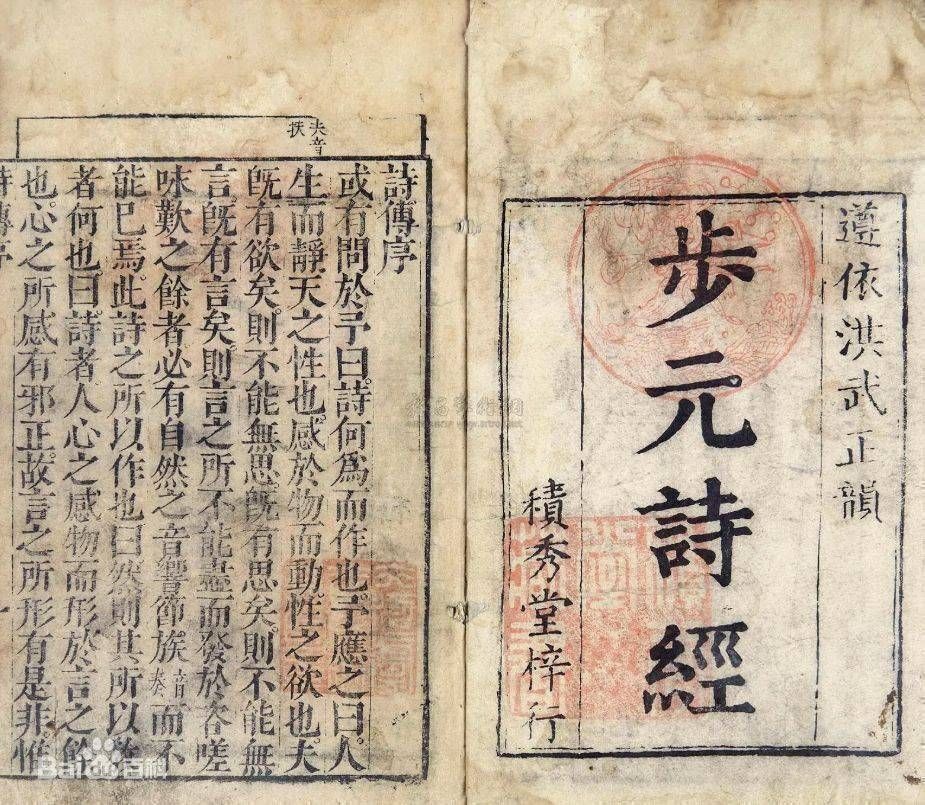 遵依洪武正韻
步元詩經
積秀堂梓行
夫音
扶
詩傳序
或有問於予曰詩何爲而作也予應之曰人
生而靜天之性也感於物而動性之欲也夫
旣有欲矣則不能無思旣有思矣則不能無
言旣有言矣則言之所不能盡而發於咨嗟
咏歎之餘者必有自然之音響節族音奏而不
能已焉此詩之所以作也曰然則其所以教
者何也曰詩者人心之感物而形於言之餘
也心之所感有邪正故言之所形有是非惟
詩傳序
一
Bai百科